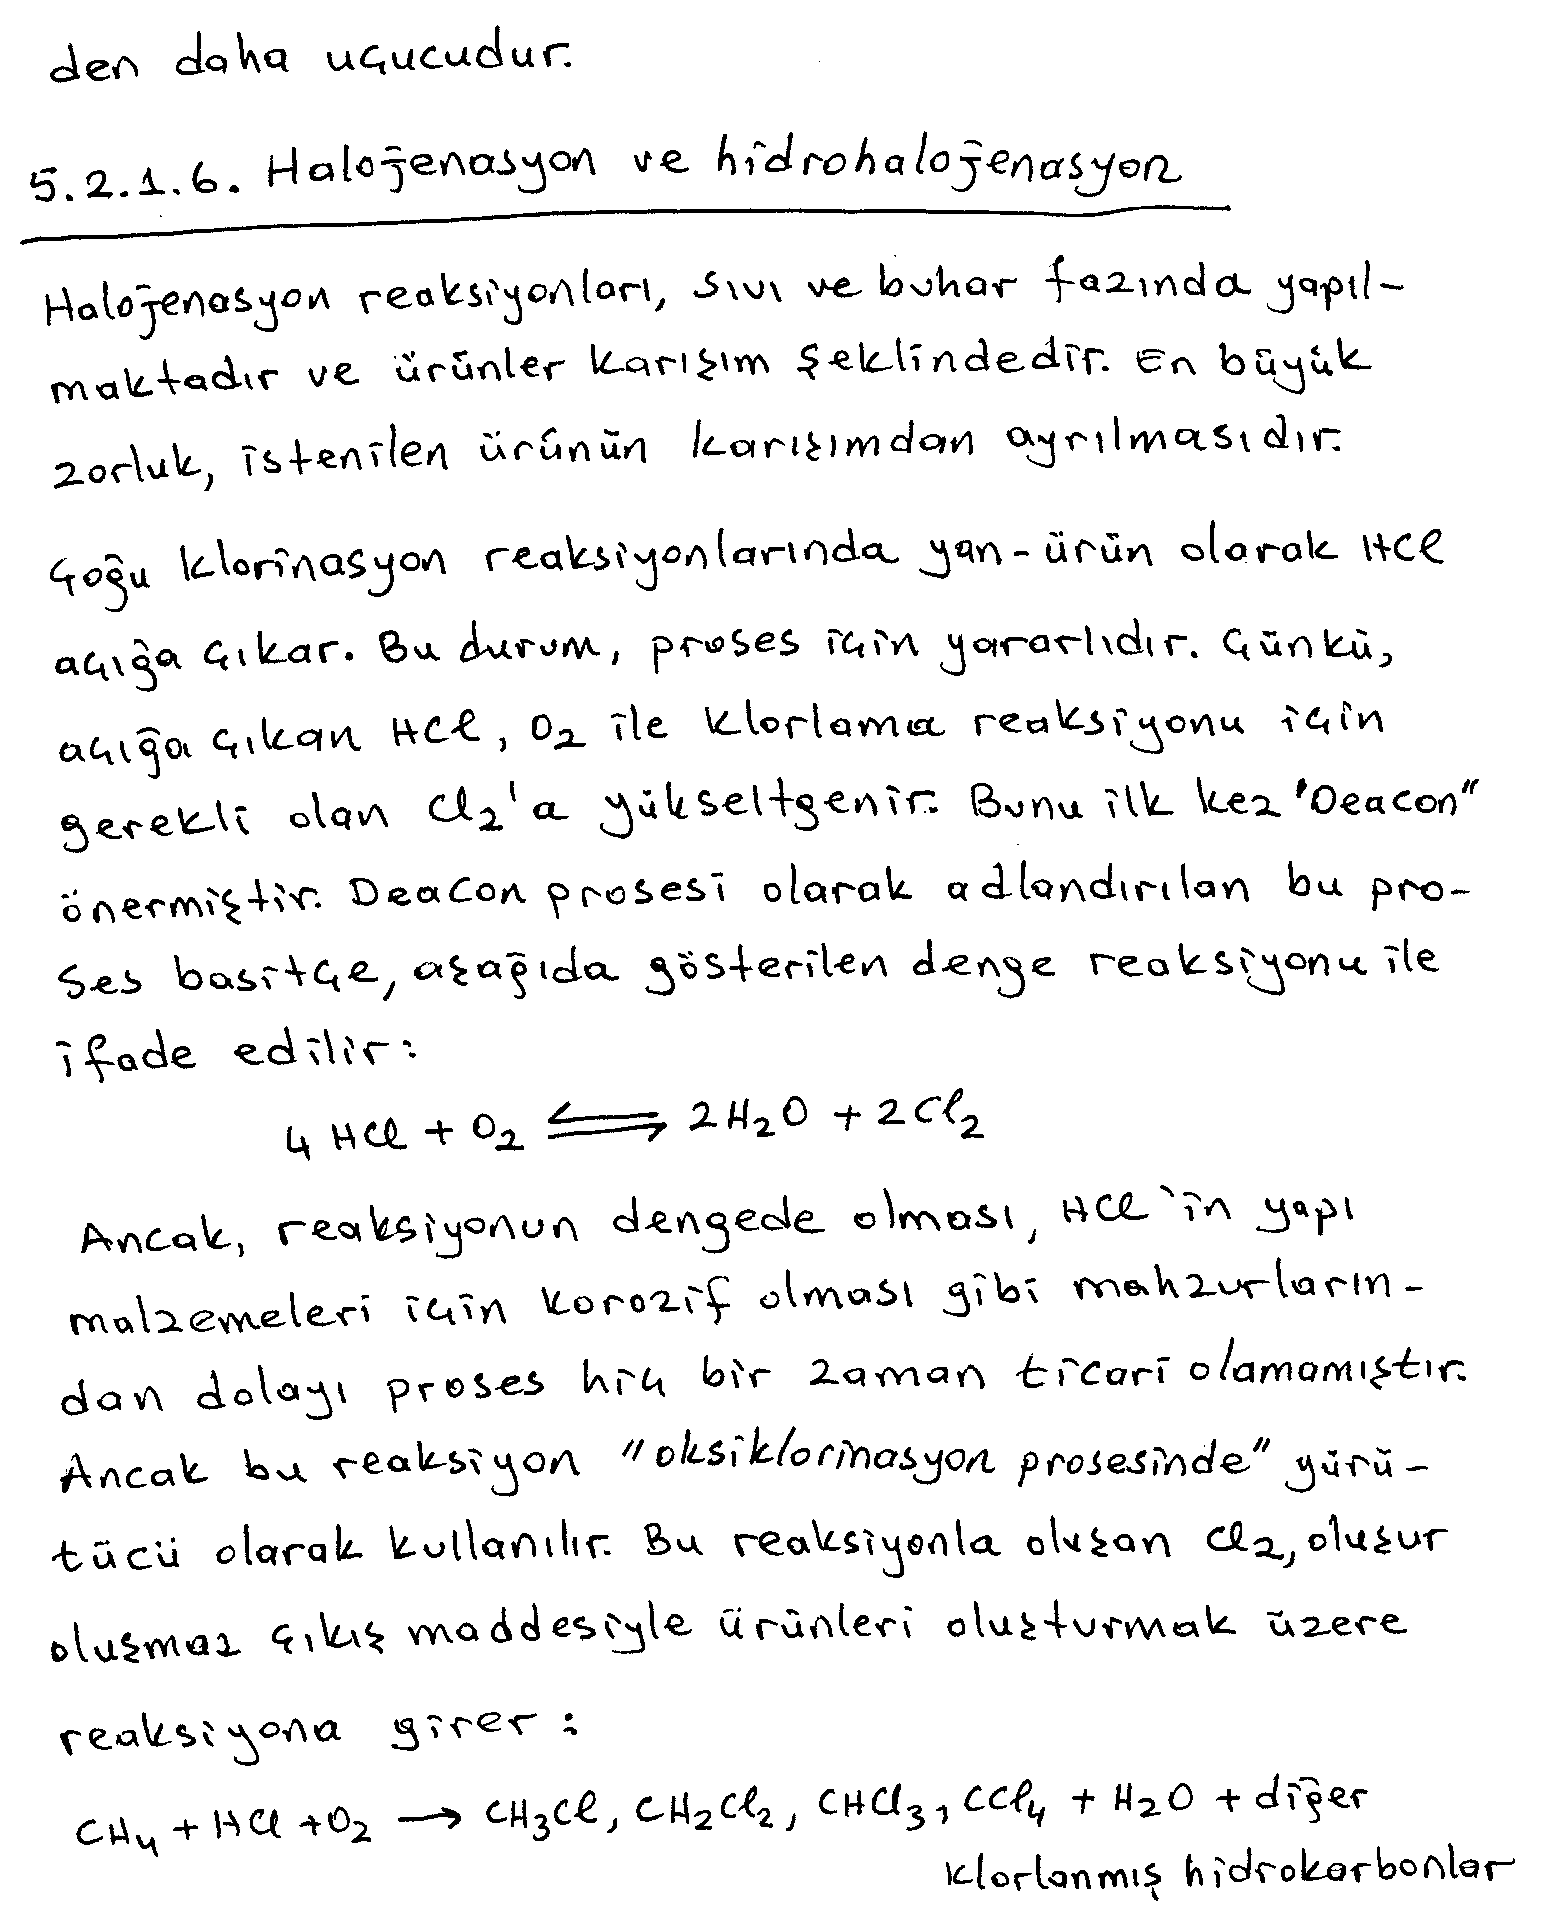 den daha uçucudur.
5.2.1.6. Halojenasyon ve hidrohalojenasyon
Halojenasyon reaksiyonları, sıvı ve buhar fazında yapıl-
maktadır ve ürünler karışım şeklindedir. En büyük
zorluk, istenilen ürünün karışımdan ayrılmasıdır.
Çoğu klorinasyon reaksiyonlarında yan-ürün olarak HCl
açığa çıkar. Bu durum, proses için yararlıdır. Çünkü,
açığa çıkan HCl, O₂ ile klorlama reaksiyonu için
gerekli olan Cl₂'a yükseltgenir. Bunu ilk kez "Deacon"
önermiştir. Deacon prosesi olarak adlandırılan bu pro-
ses basitçe, aşağıda gösterilen denge reaksiyonu ile
ifade edilir:
4 HCl + O₂ ⇌ 2H₂O + 2Cl₂
Ancak, reaksiyonun dengede olması, HCl'in yapı
malzemeleri için korozif olması gibi mahzurların-
dan dolayı proses hiç bir zaman ticari olamamıştır.
Ancak bu reaksiyon "oksiklorinasyon prosesinde" yürü-
tücü olarak kullanılır. Bu reaksiyonla oluşan Cl₂, oluşur
oluşmaz çıkış maddesiyle ürünleri oluşturmak üzere
reaksiyona girer :
CH₄ + HCl + O₂ → CH₃Cl, CH₂Cl₂, CHCl₃, CCl₄ + H₂O + diğer
klorlanmış hidrokarbonlar